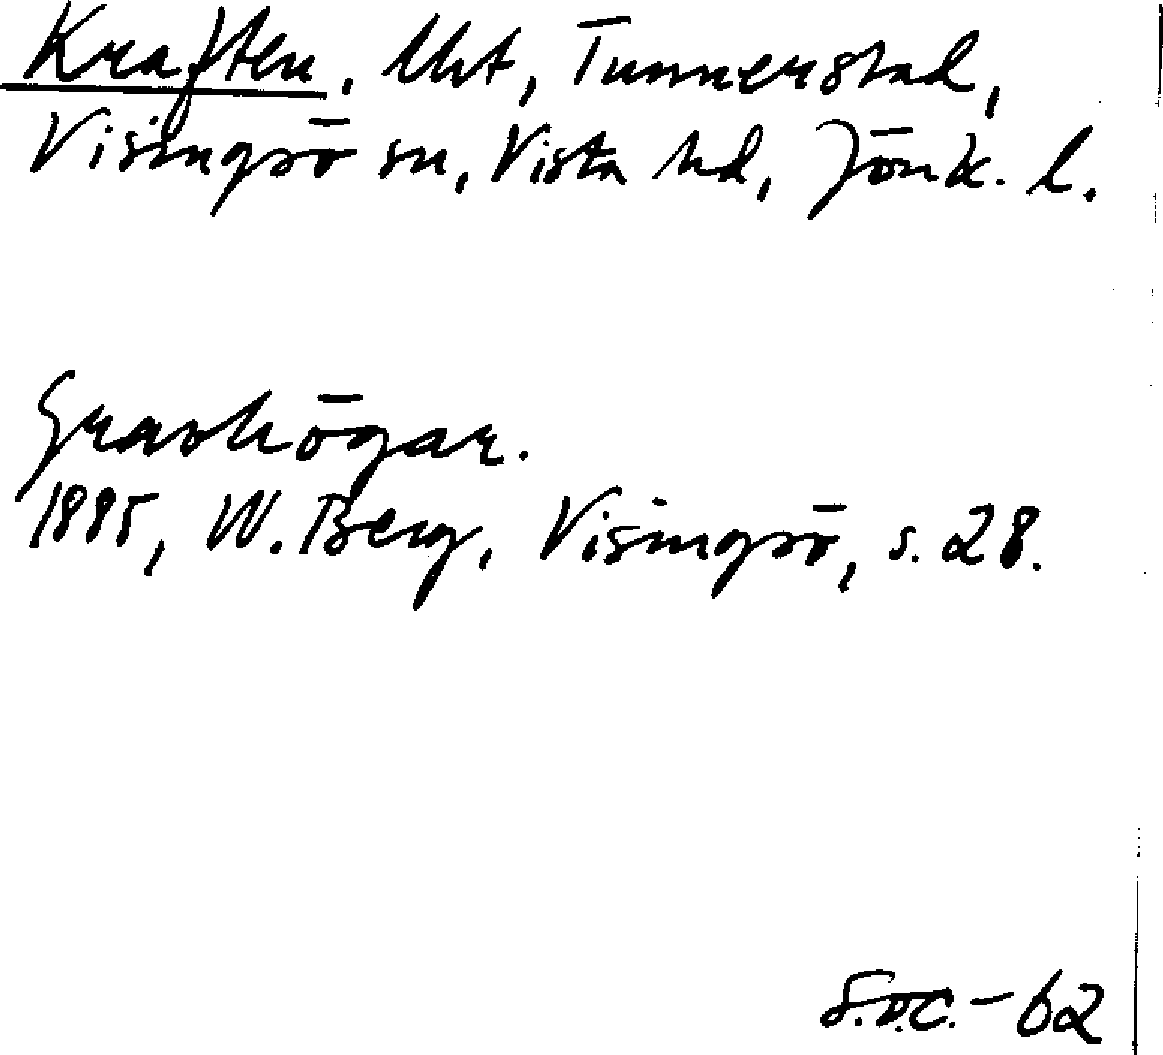 Kraften. Uht, Tunnerstad,
Visingsö sn, Vista hd, Jönk. l.
Gravhögar.
1885, W. Berg, Visingsö, s. 28.
S.O.C. - 62